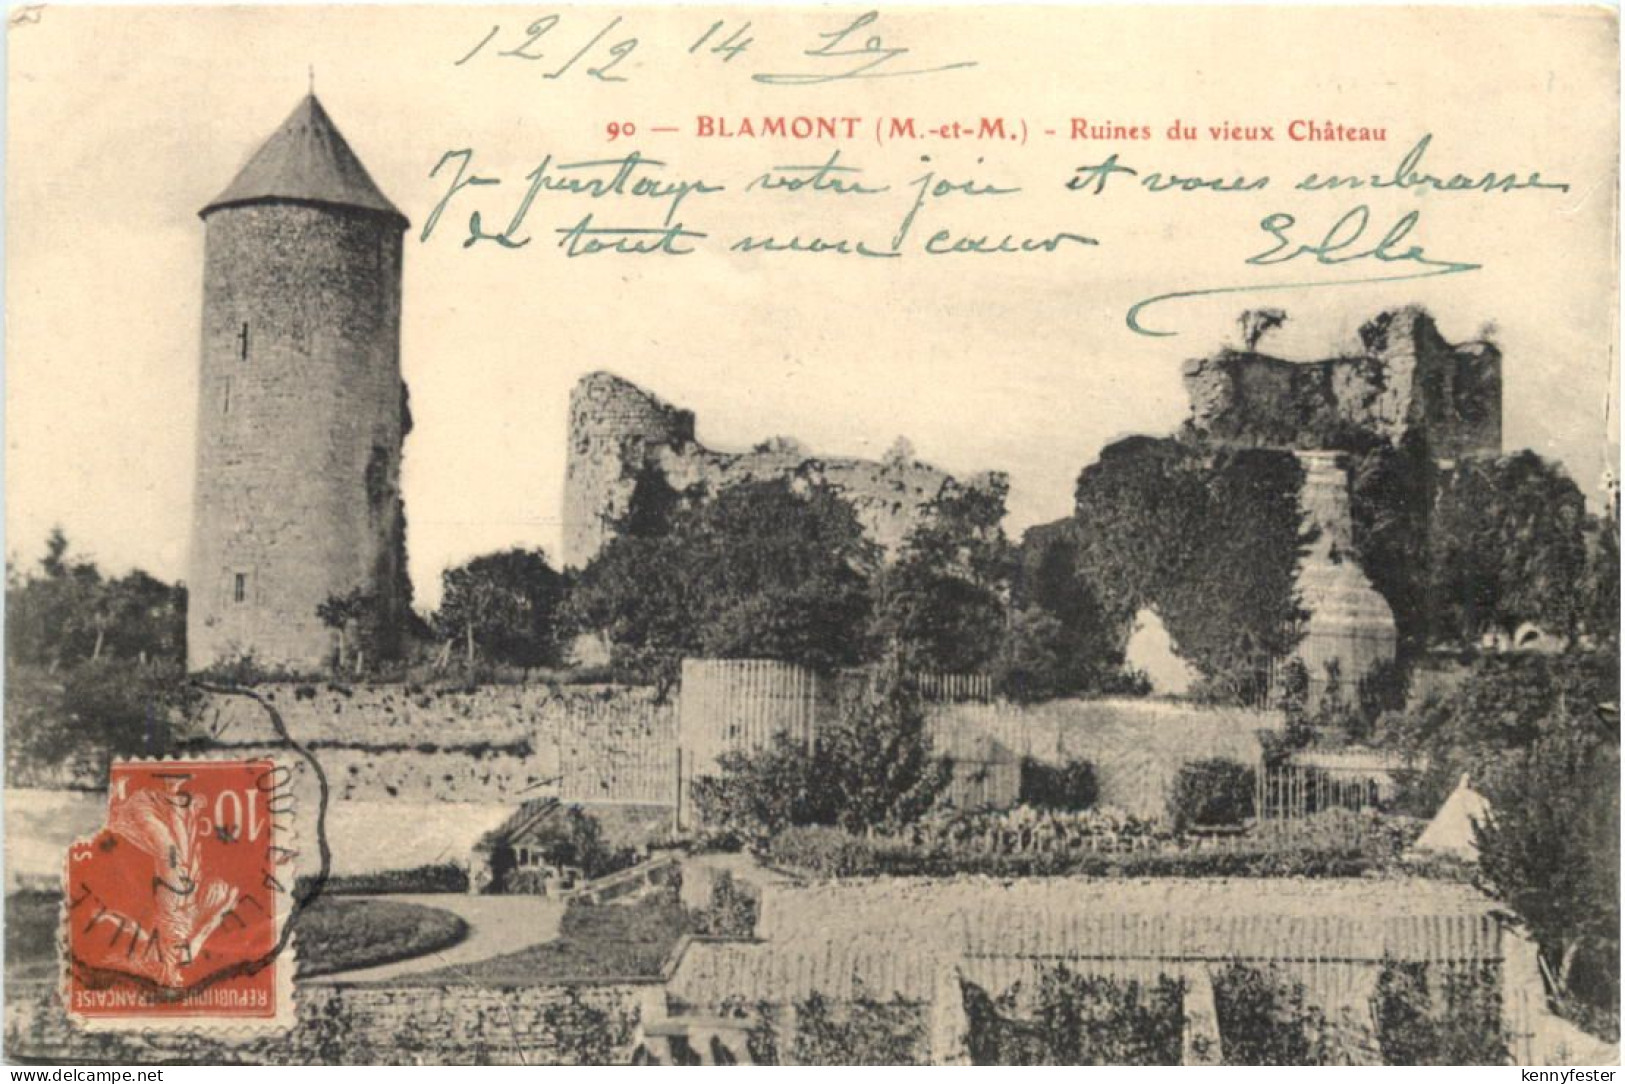 12/2 14 Le
90 — BLAMONT (M.-et-M.) - Ruines du vieux Château
Je partage votre joie et vous embrasse
de tout mon cœur Elle
10c
12 - 2
VILLE
RÉPUBLIQUE FRANÇAISE
Delcampe.net
kennyfester